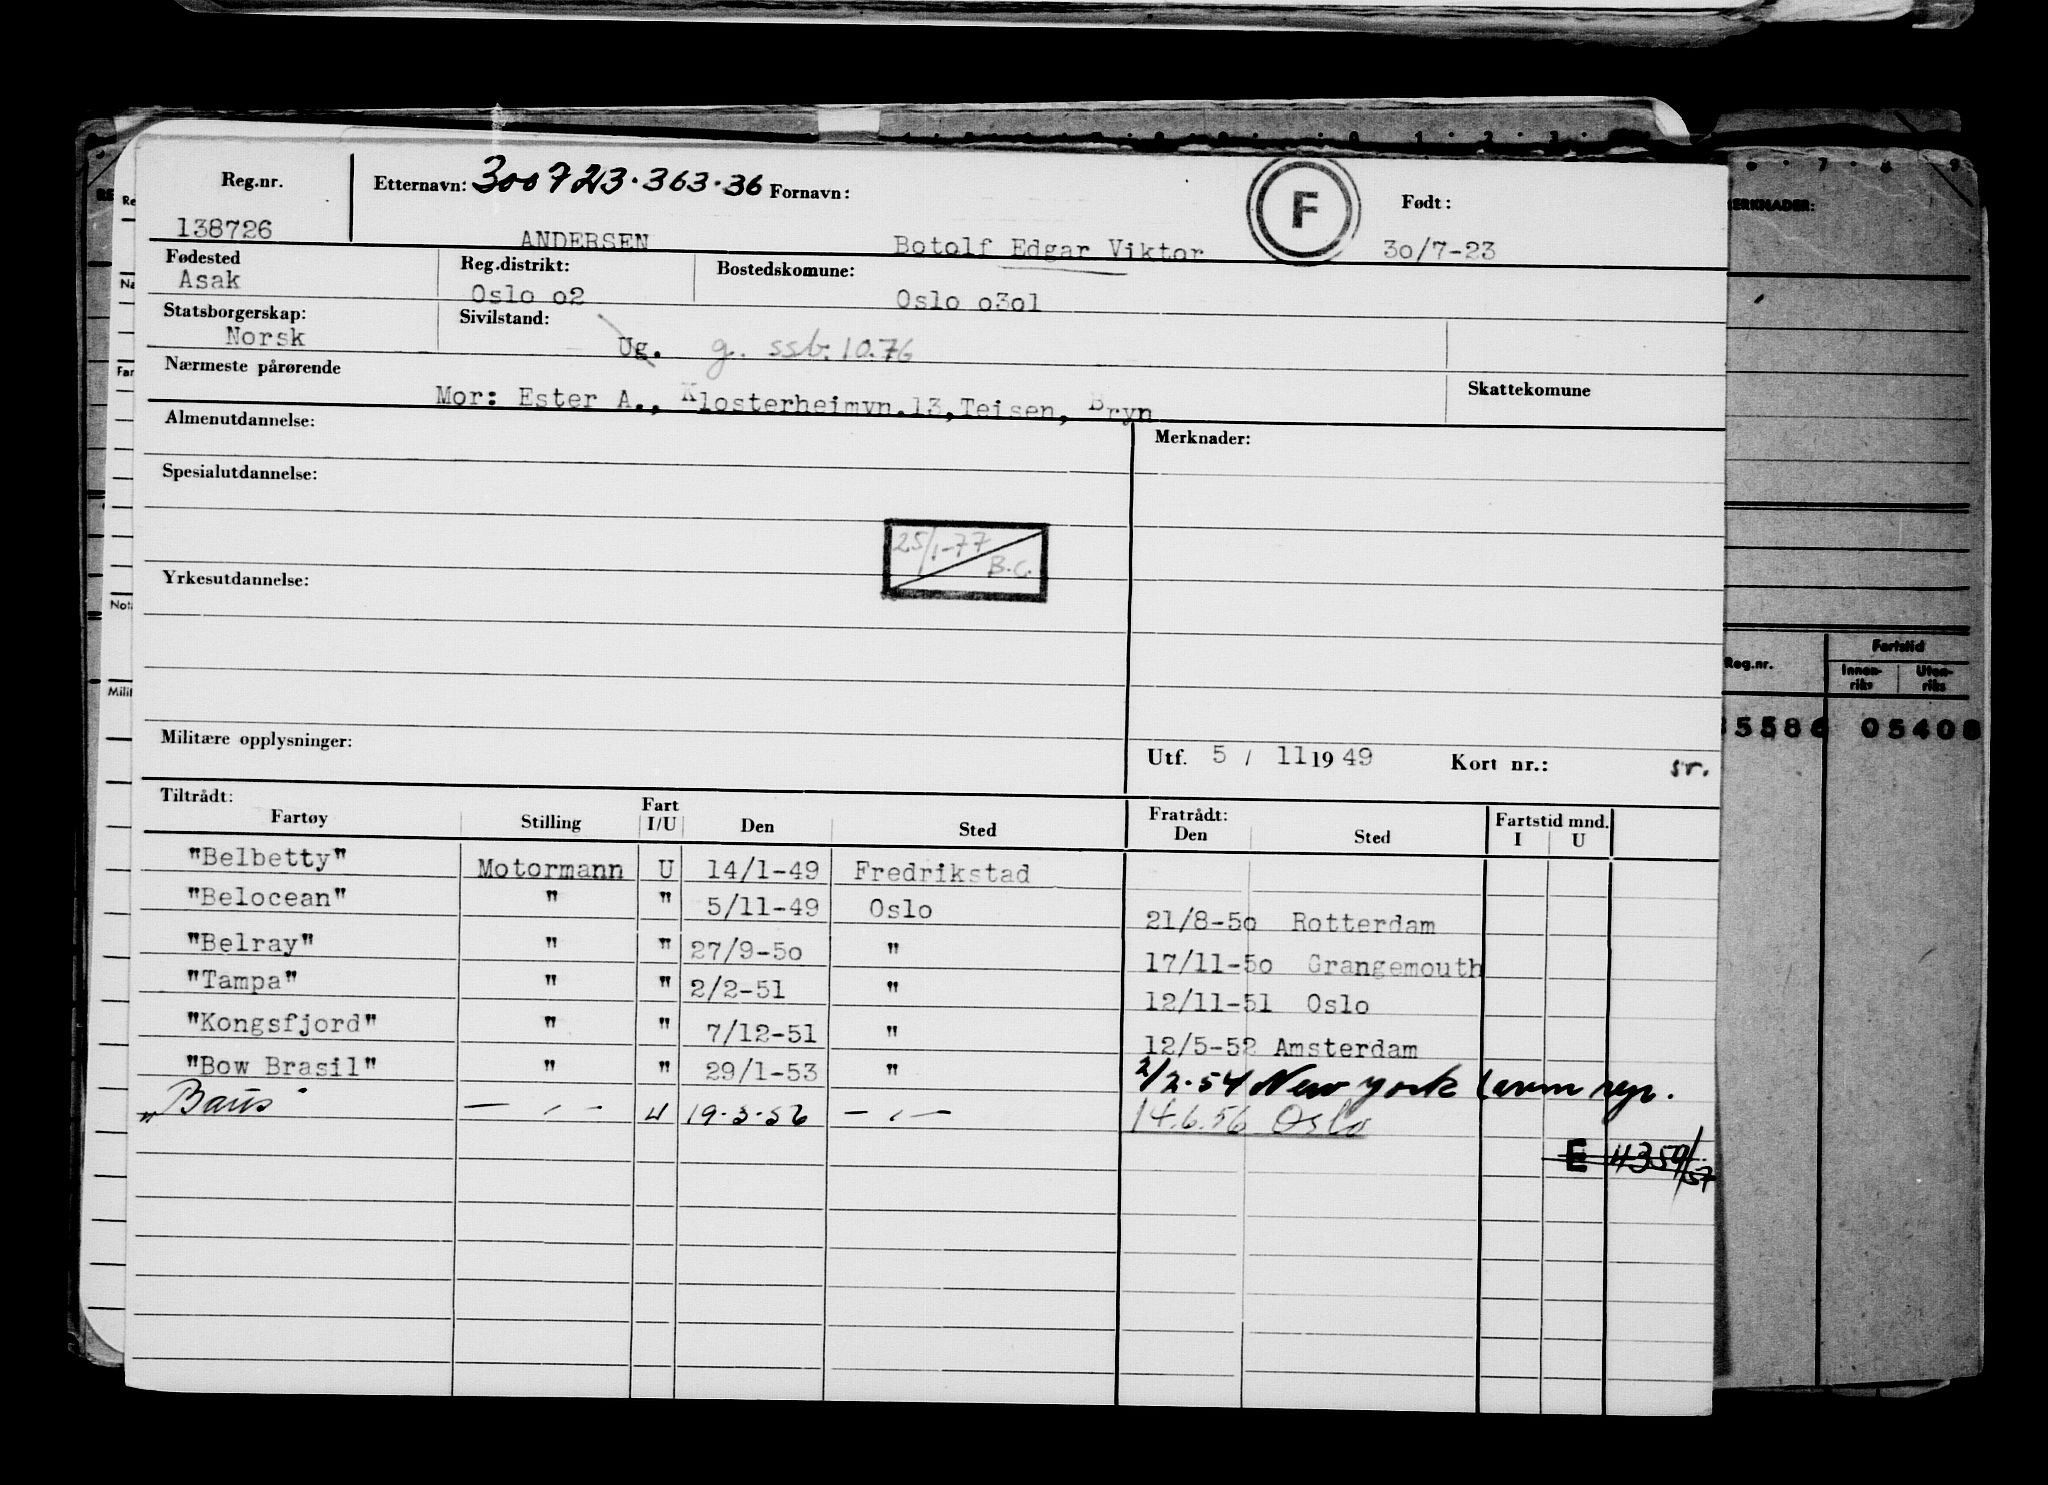 Reg.nr. Etternavn: 300723.363.36 Fornavn: F Født:
138726 ANDERSEN Botolf Edgar Viktor 30/7-23
Fødested Reg.distrikt: Bostedskomune:
Asak Oslo o2 Oslo o3ol
Statsborgerskap: Sivilstand:
Norsk Ug. g. ssb. 10.76
Nærmeste pårørende Skattekomune
Mor: Ester A., Klosterheimvn.13,Teisen, Bryn
Almenutdannelse: Merknader:
Spesialutdannelse:
25/1-77
B.C.
Yrkesutdannelse:
Militære opplysninger: Utf. 5 / 11 19 49 Kort nr.: sr.
Tiltrådt: Fratrådt:
Fartøy Stilling Fart I/U Den Sted Den Sted Fartstid mnd. I U
"Belbetty" Motormann U 14/1-49 Fredrikstad
"Belocean" " " 5/11-49 Oslo 21/8-50 Rotterdam
"Belray" " " 27/9-50 " 17/11-50 Grangemouth
"Tampa" " " 2/2-51 " 12/11-51 Oslo
"Kongsfjord" " " 7/12-51 " 12/5-52 Amsterdam
"Bow Brasil" " " 29/1-53 " 2/2-54 New York
— " — U 19-3-56 — " — 14.6.56 Oslo
E 4359/57
MERKNADER:
Reg.nr. Fartstid
Innen-riks Uten-riks
35586 05408